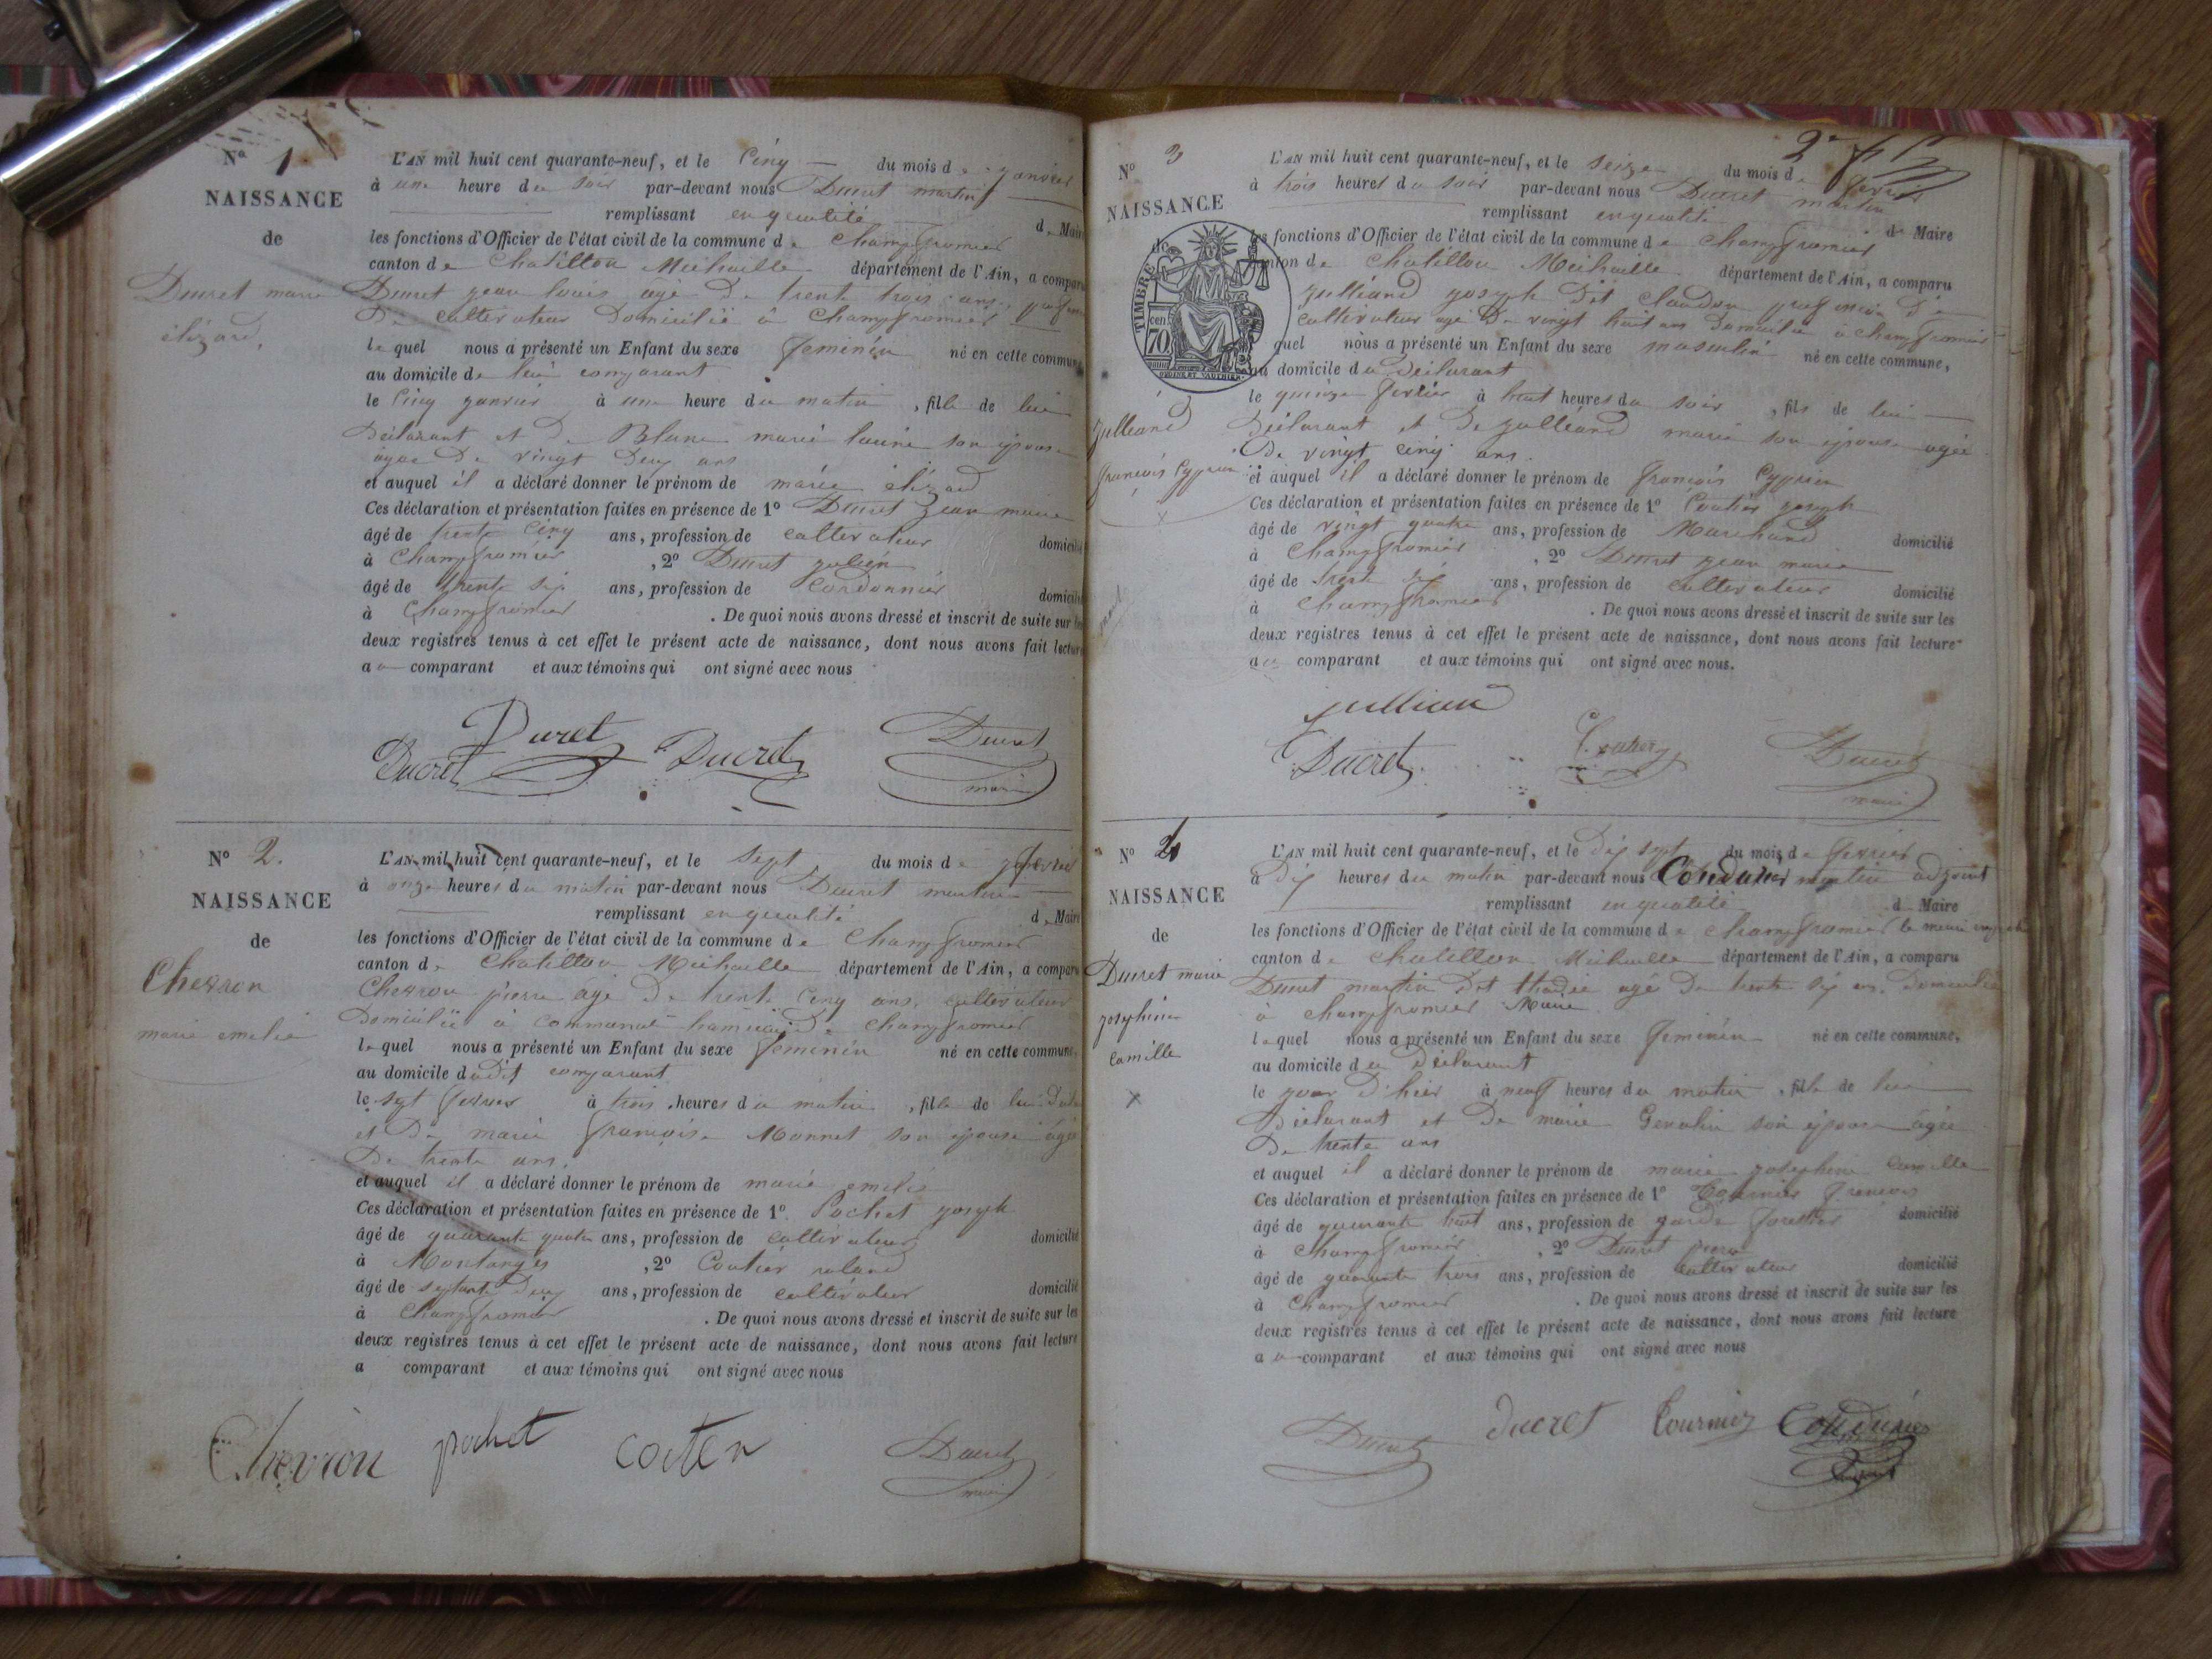 N° 1.
NAISSANCE
de
Ducret marie
élizard,
L'AN mil huit cent quarante-neuf, et le Cinq du mois de janvier
à une heure du soir par-devant nous Ducret martin
remplissant en qualité de Maire
les fonctions d'Officier de l'état civil de la commune de Champfromier
canton de Chatillon Michaille département de l'Ain, a comparu
Ducret jean louis agé De trente trois ans, prof
De cultivateur Domicilié à Champfromier
lequel nous a présenté un Enfant du sexe feminin né en cette commune
au domicile de lui comparant
le Cinq janvier à une heure du matin, fille de lui
Déclarant et De Blanc marie louise son épouse
agée De vingt Deux ans
et auquel il a déclaré donner le prénom de marie élizard
Ces déclaration et présentation faites en présence de 1° Ducret jean marie
âgé de trente cinq ans, profession de cultivateur domicilié
à Champfromier, 2° Ducret julien
âgé de trente six ans, profession de Cordonnier domicilié
à Champfromier. De quoi nous avons dressé et inscrit de suite sur les
deux registres tenus à cet effet le présent acte de naissance, dont nous avons fait lecture
au comparant et aux témoins qui ont signé avec nous
Ducret Ducret Ducret Ducret
maire
N° 2.
NAISSANCE
de
Chevron
marie emelie
L'AN mil huit cent quarante-neuf, et le Sept du mois de fevrier
à onze heures du matin par-devant nous Ducret martin
remplissant en qualité de Maire
les fonctions d'Officier de l'état civil de la commune de Champfromier
canton de Chatillon Michaille département de l'Ain, a comparu
Chevron pierre agé De trente Cinq ans, cultivateur
Domicilié à communal hameau De Champfromier
lequel nous a présenté un Enfant du sexe feminin né en cette commune,
au domicile dudit comparant
le sept fevrier à trois heures du matin, fille de lui
et De marie françoise Monnet son épouse agé
De trente ans,
et auquel il a déclaré donner le prénom de marie emelie
Ces déclaration et présentation faites en présence de 1° Pochet joseph
âgé de quarante quatre ans, profession de cultivateur domicilié
à Montanges, 2° Coutier roland
âgé de septante Deux ans, profession de cultivateur domicilié
à Champfromier. De quoi nous avons dressé et inscrit de suite sur les
deux registres tenus à cet effet le présent acte de naissance, dont nous avons fait lecture
a comparant et aux témoins qui ont signé avec nous
Chevron pochet Ducret
maire
2e
N° 3
NAISSANCE
de
TIMBRE
70 cen
Julliand
françois Cyprien
X
L'AN mil huit cent quarante-neuf, et le seize du mois de fevrier
à trois heures du soir par-devant nous Ducret martin
remplissant en qualité de Maire
les fonctions d'Officier de l'état civil de la commune de Champfromier
canton de Chatillon Michaille département de l'Ain, a comparu
Julliand joseph Dit claudon profession De
cultivateur agé De vingt huit ans Domicilié à Champfromier
lequel nous a présenté un Enfant du sexe masculin né en cette commune,
au domicile du Déclarant
le quinze fevrier à huit heures du soir, fils de lui
Déclarant et De Julliand marie son épouse agée
De vingt cinq ans.
et auquel il a déclaré donner le prénom de françois Cyprien
Ces déclaration et présentation faites en présence de 1° Coutier joseph
âgé de vingt quatre ans, profession de Marchand domicilié
à Champfromier, 2° Ducret jean marie
âgé de trente six ans, profession de cultivateur domicilié
à Champfromier. De quoi nous avons dressé et inscrit de suite sur les
deux registres tenus à cet effet le présent acte de naissance, dont nous avons fait lecture
au comparant et aux témoins qui ont signé avec nous.
jullian
Ducret Coutier Ducret
maire
N° 4
NAISSANCE
de
Ducret marie
josephine
Camille
X
L'AN mil huit cent quarante-neuf, et le Dix sept du mois de fevrier
à Dix heures du matin par-devant nous Coudurier martin adjoint
remplissant en qualité de Maire
les fonctions d'Officier de l'état civil de la commune de Champfromier le maire
canton de Chatillon Michaille département de l'Ain, a comparu
Ducret martin Dit thadée agé De trente six ans Domicilié
à Champfromier Maire
lequel nous a présenté un Enfant du sexe feminin né en cette commune,
au domicile du Déclarant
le jour D'hier à neuf heures du matin, fille de lui
Déclarant et De marie Genolin son épouse agée
De trente ans
et auquel il a déclaré donner le prénom de marie josephine Camille
Ces déclaration et présentation faites en présence de 1° Tournier francois
âgé de quarante huit ans, profession de garde forestier domicilié
à Champfromier, 2° Ducret pierre
âgé de quarante trois ans, profession de cultivateur domicilié
à Champfromier. De quoi nous avons dressé et inscrit de suite sur les
deux registres tenus à cet effet le présent acte de naissance, dont nous avons fait lecture
au comparant et aux témoins qui ont signé avec nous
Ducret ducret tournier Coudurier